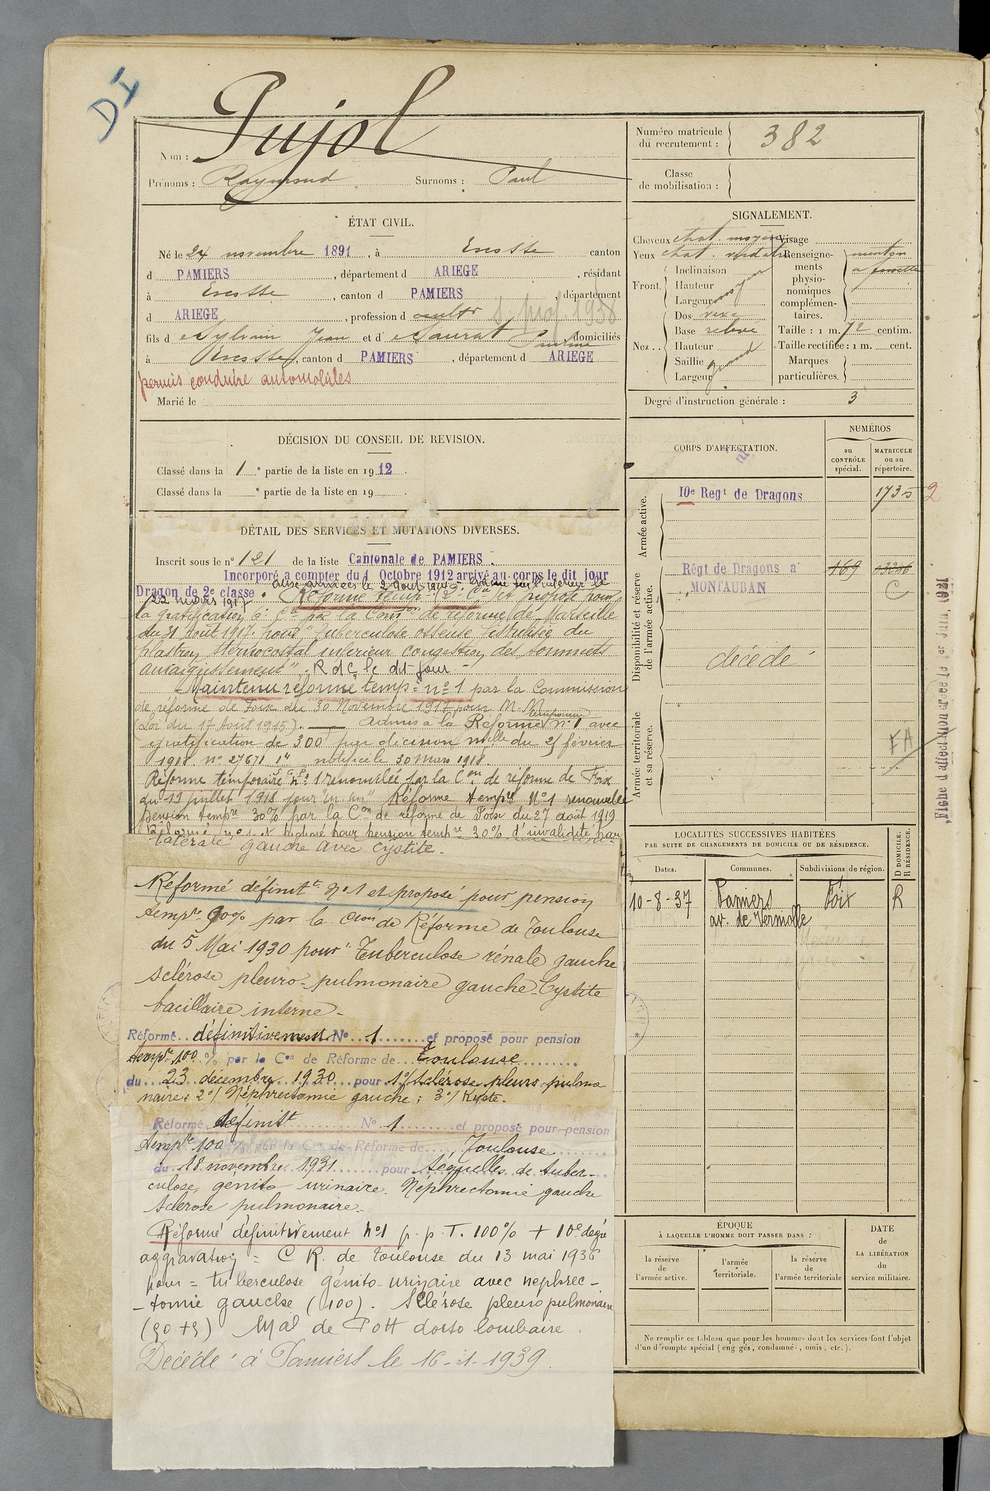 DI
Nom : Pujol
Prénoms : Raymond Surnoms : Paul
Numéro matricule du recrutement : 382
Classe de mobilisation :
ÉTAT CIVIL.
Né le 24 novembre 1891, à Escosse canton
d PAMIERS, département d ARIEGE, résidant
à Escosse, canton d PAMIERS, département
d ARIEGE, profession d cultr s. prof. 1938
fils d Sylvain Jean et d Saurat domiciliés
à Escosse, canton d PAMIERS, département d ARIEGE
permis conduire automobiles
Marié le
SIGNALEMENT.
Cheveux chat. moyen Visage
Yeux chat. verdatre
Front. Inclinaison
Hauteur
Largeur moyen
Nez.. Dos vexe
Base relevé
Hauteur
Saillie grand
Largeur
Renseignements physionomiques complémentaires. menton à fossette
Taille : 1 m. 72 centim.
Taille rectifiée : 1 m. cent.
Marques particulières.
Degré d'instruction générale : 3
DÉCISION DU CONSEIL DE REVISION.
Classé dans la 1 e partie de la liste en 1912.
Classé dans la e partie de la liste en 19
CORPS D'AFFECTATION.
NUMÉROS
au CONTRÔLE spécial.
MATRICULE ou au répertoire.
Armée active.
10e Regt de Dragons 1735 2
Disponibilité et réserve de l'armée active.
Régt de Dragons à MONTAUBAN 169
C
décédé
Armée territoriale et sa réserve.
FA
DÉTAIL DES SERVICES ET MUTATIONS DIVERSES.
Inscrit sous le n° 121 de la liste Cantonale de PAMIERS.
Incorporé à compter du 1 Octobre 1912 arrivé au corps le dit jour
Dragon de 2e classe.
22 mars 1917
la gratification 6e Cie par la Comon de réforme de Marseille
du 31 Aout 1917 pour "Tuberculose osseuse fistulisée du
plastron sternocostal inférieur des sommets
amaigrissement". R d C le dit jour
Maintenu réformé temp. n° 1 par la Commission
de réforme de Foix du 30 Novembre 1917 pour M. M.
(Loi du 17 Aout 1915). Admis à la Réforme temporaire N° 1 avec
gratification de 300f par décision mlle du 21 février
1918 n° 27671 notifiée le 30 Mars 1918
Réforme temporaire n° 1 renouvelée par la Con de réforme de Foix
du 19 juillet 1918 pour Réforme tempre N°1 renouvelée
pension tempre 30% par la Con de réforme de Foix du 27 aout 1919
Réformé n° 1 et proposé pour pension tempre 30% d'invalidité par
latérale gauche avec cystite.
Réformé définitt N°1 et proposé pour pension
tempre 90% par la Cion de Réforme de Toulouse
du 5 Mai 1930 pour "Tuberculose rénale gauche
sclérose pleuro-pulmonaire gauche. Cystite
bacillaire interne.
Réformé définitivement N° 1 et proposé pour pension
tempre 100% par la Con de Réforme de Toulouse
du 23 décembre 1930 pour 1°/ Sclérose pleuro pulmo
naire; 2°/ Néphrectomie gauche; 3°/ Kyste.
Réformé définitt N° 1 et proposé pour pension
tempre 100% par la Con de Réforme de Toulouse
du 18 novembre 1931 pour Séquelles de tuber-
culose génito urinaire. Néphrectomie gauche
Sclérose pulmonaire.
Réformé définitivement n°1 p. p. T. 100% + 10e degré
aggravation = C R. de Toulouse du 13 mai 1936
pour = tuberculose génito-urinaire avec nephrec-
-tomie gauche (100). Sclérose pleuro pulmonaire
(30 +5) Mal de Pott dorso lombaire.
Décédé à Pamiers le 16-1-1939.
LOCALITÉS SUCCESSIVES HABITÉES
PAR SUITE DE CHANGEMENTS DE DOMICILE OU DE RÉSIDENCE.
Dates. Communes. Subdivisions de région. D DOMICILE. R RÉSIDENCE.
10-8-37 Pamiers Foix R
av. de Verniolle
ÉPOQUE
À LAQUELLE L'HOMME DOIT PASSER DANS :
la réserve de l'armée active.
l'armée territoriale.
la réserve de l'armée territoriale
DATE de LA LIBÉRATION du service militaire.
Ne remplir ce tableau que pour les hommes dont les services font l'objet
d'un décompte spécial (engagés, condamnés, omis, etc.).